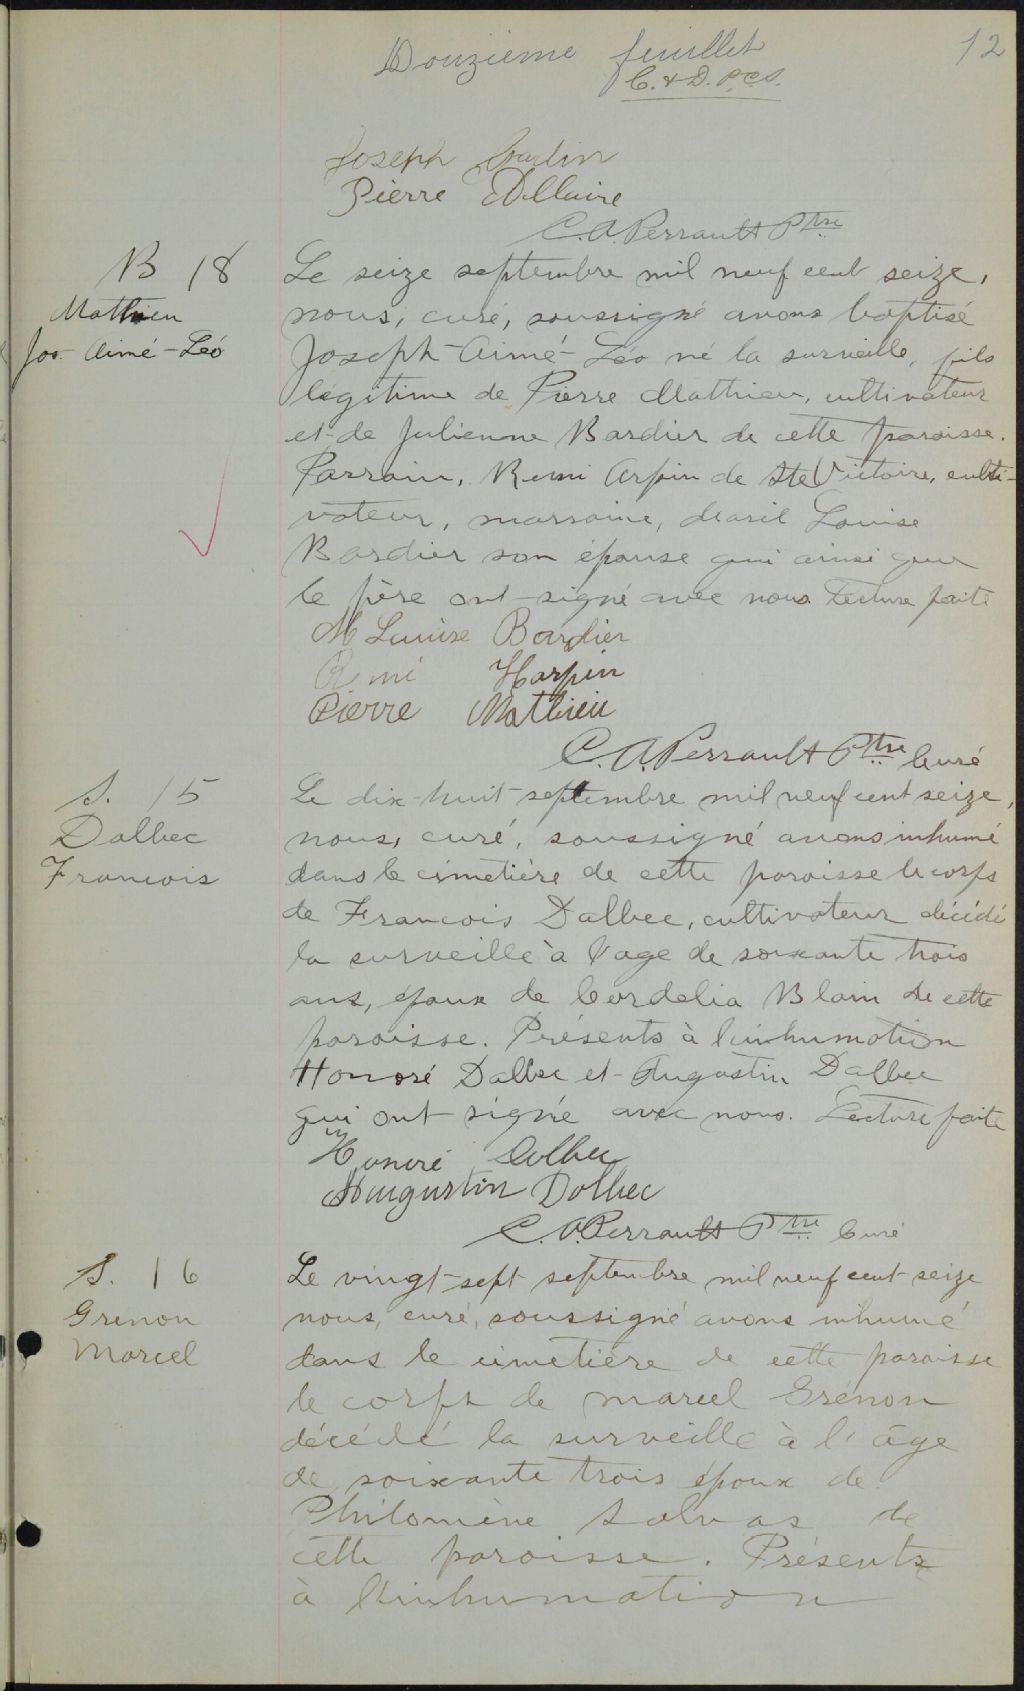 Douzième feuillet
12
C. & D. P.C.S.
Joseph
Pierre Allaire
C. A. Perrault Ptre
B 18
Mathieu
Jos- Aimé-Léo
Le seize septembre mil neuf cent seize,
nous, curé, soussigné avons baptisé
Joseph-Aimé-Léo né la surveille, fils
légitime de Pierre Mathieu, cultivateur
et de Julienne Bardier de cette paroisse.
Parrain, Remi Arpin de Ste Victoire, culti-
vateur, marraine, Louise
Bardier son épouse qui ainsi que
le père ont signé avec nous. Lecture faite
M Louise Bardier
Rémi Harpin
Pierre Mathieu
C. A. Perrault Ptre Curé
S. 15
Dalbec
Francois
Le dix-huit septembre mil neuf cent seize,
nous, curé, soussigné avons inhumé
dans le cimetière de cette paroisse le corps
de Francois Dalbec, cultivateur décédé
la surveille à l'age de soixante trois
ans, époux de Cordelia Blain de cette
paroisse. Présents à l'inhumation
Honoré Dalbec et Augustin Dalbec
qui ont signé avec nous. Lecture faite
Honoré Dolbec
Augustin Dolbec
C. A. Perrault Ptre Curé
S. 16
Grenon
Marcel
Le vingt-sept septembre mil neuf cent seize
nous, curé, soussigné avons inhumé
dans le cimetière de cette paroisse
le corps de Marcel Grénon
décédé la surveille à l'âge
de soixante trois époux de
Philomène Salvas de
cette paroisse. Présents
à l'inhumation